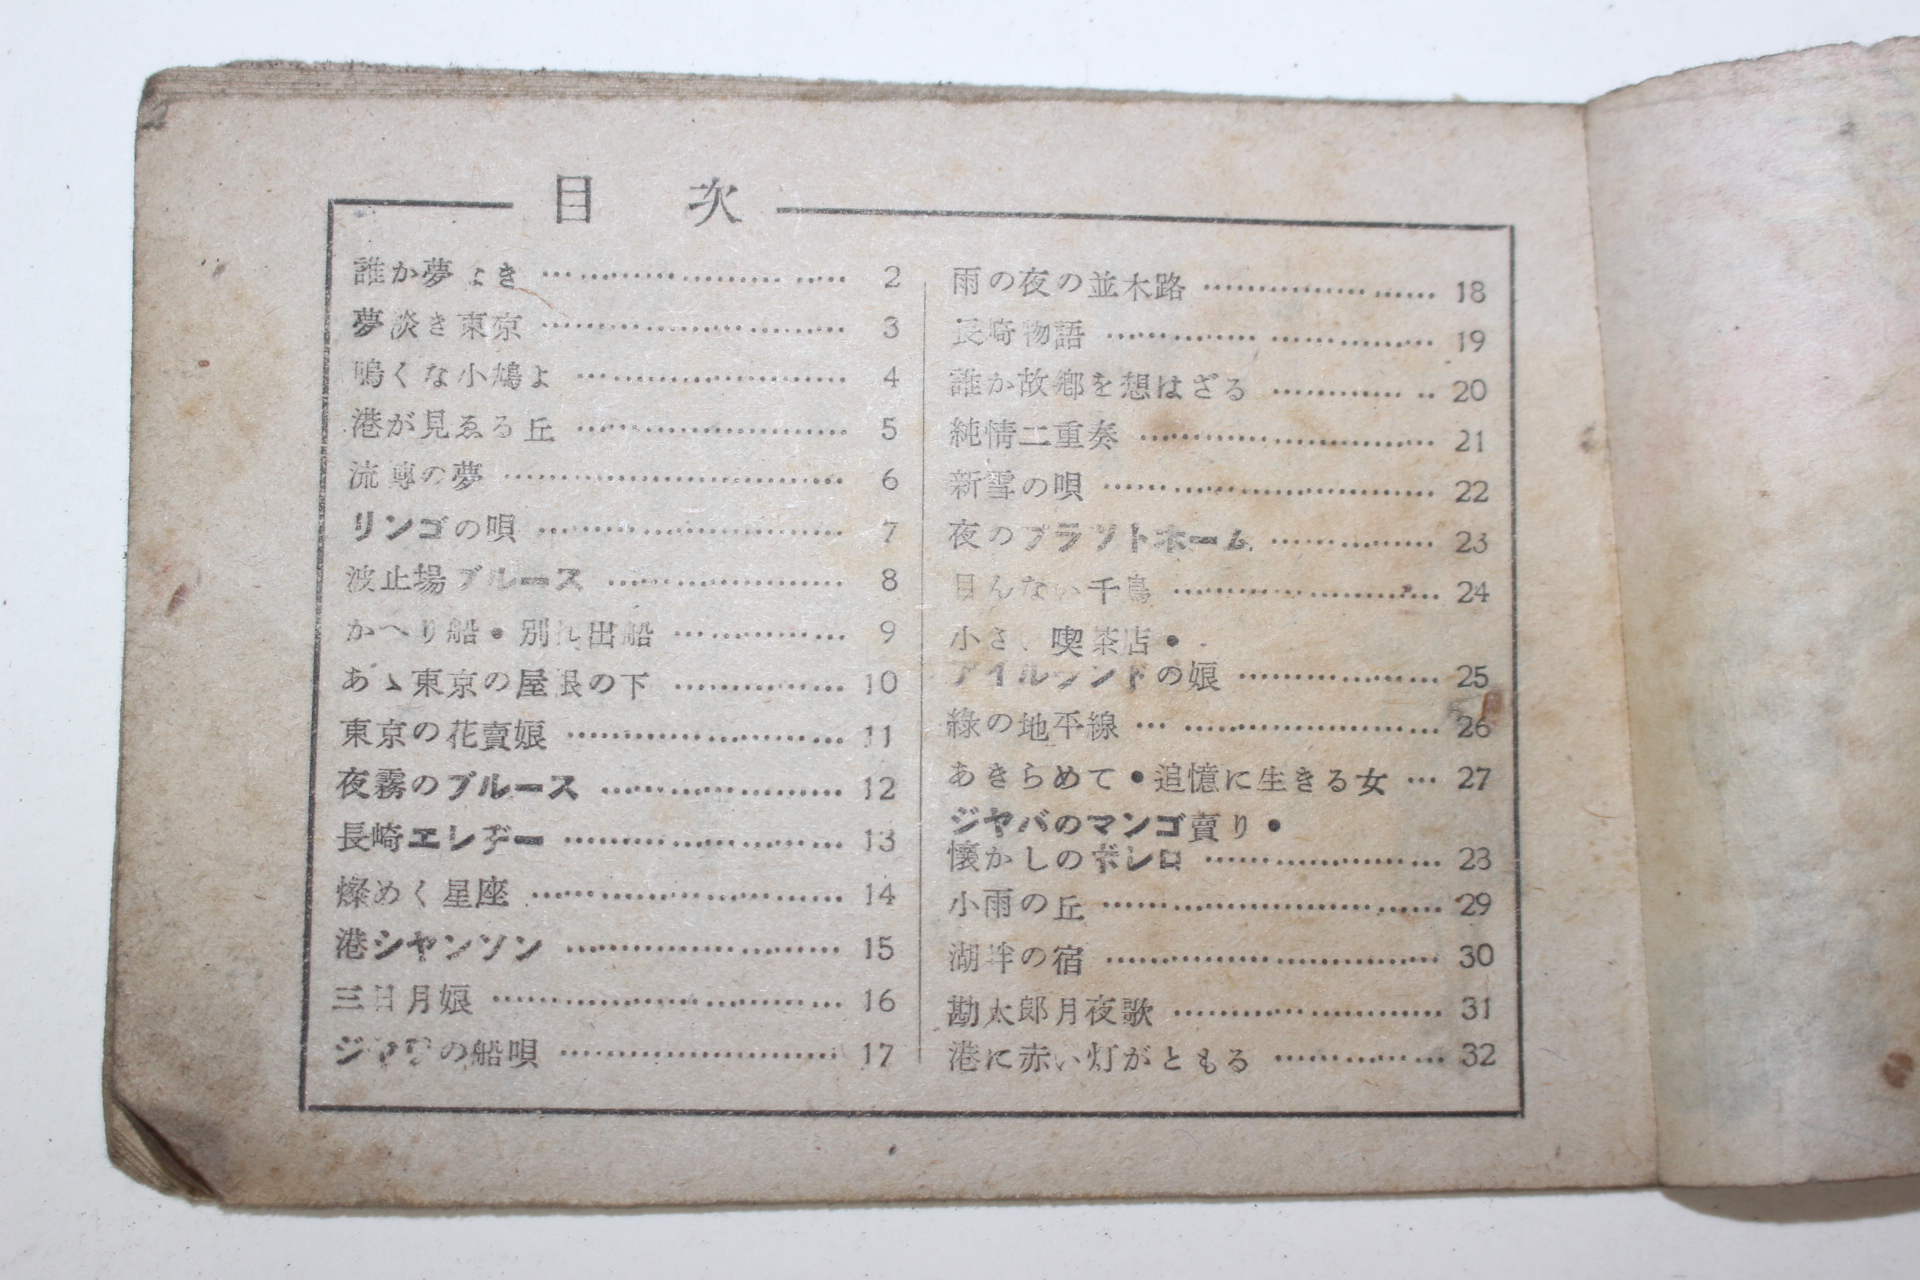 目次
誰か夢よき …… 2
夢淡き東京 …… 3
鳴くな小鳩よ …… 4
港が見ゑる丘 …… 5
流轉の夢 …… 6
リンゴの唄 …… 7
波止場ブルース …… 8
かへり船・別れ出船 …… 9
あゝ東京の屋根の下 …… 10
東京の花賣娘 …… 11
夜霧のブルース …… 12
長崎エレヂー …… 13
燦めく星座 …… 14
港シヤンソン …… 15
三日月娘 …… 16
ジヤワの船唄 …… 17
雨の夜の並木路 …… 18
長崎物語 …… 19
誰か故郷を想はざる …… 20
純情二重奏 …… 21
新雪の唄 …… 22
夜のプラツトホーム …… 23
目んない千鳥 …… 24
小さい喫茶店・
アイルランドの娘 …… 25
綠の地平線 …… 26
あきらめて・追憶に生きる女 … 27
ジヤバのマンゴ賣り・
懐かしのボレロ …… 23
小雨の丘 …… 29
湖畔の宿 …… 30
勘太郎月夜歌 …… 31
港に赤い灯がともる …… 32